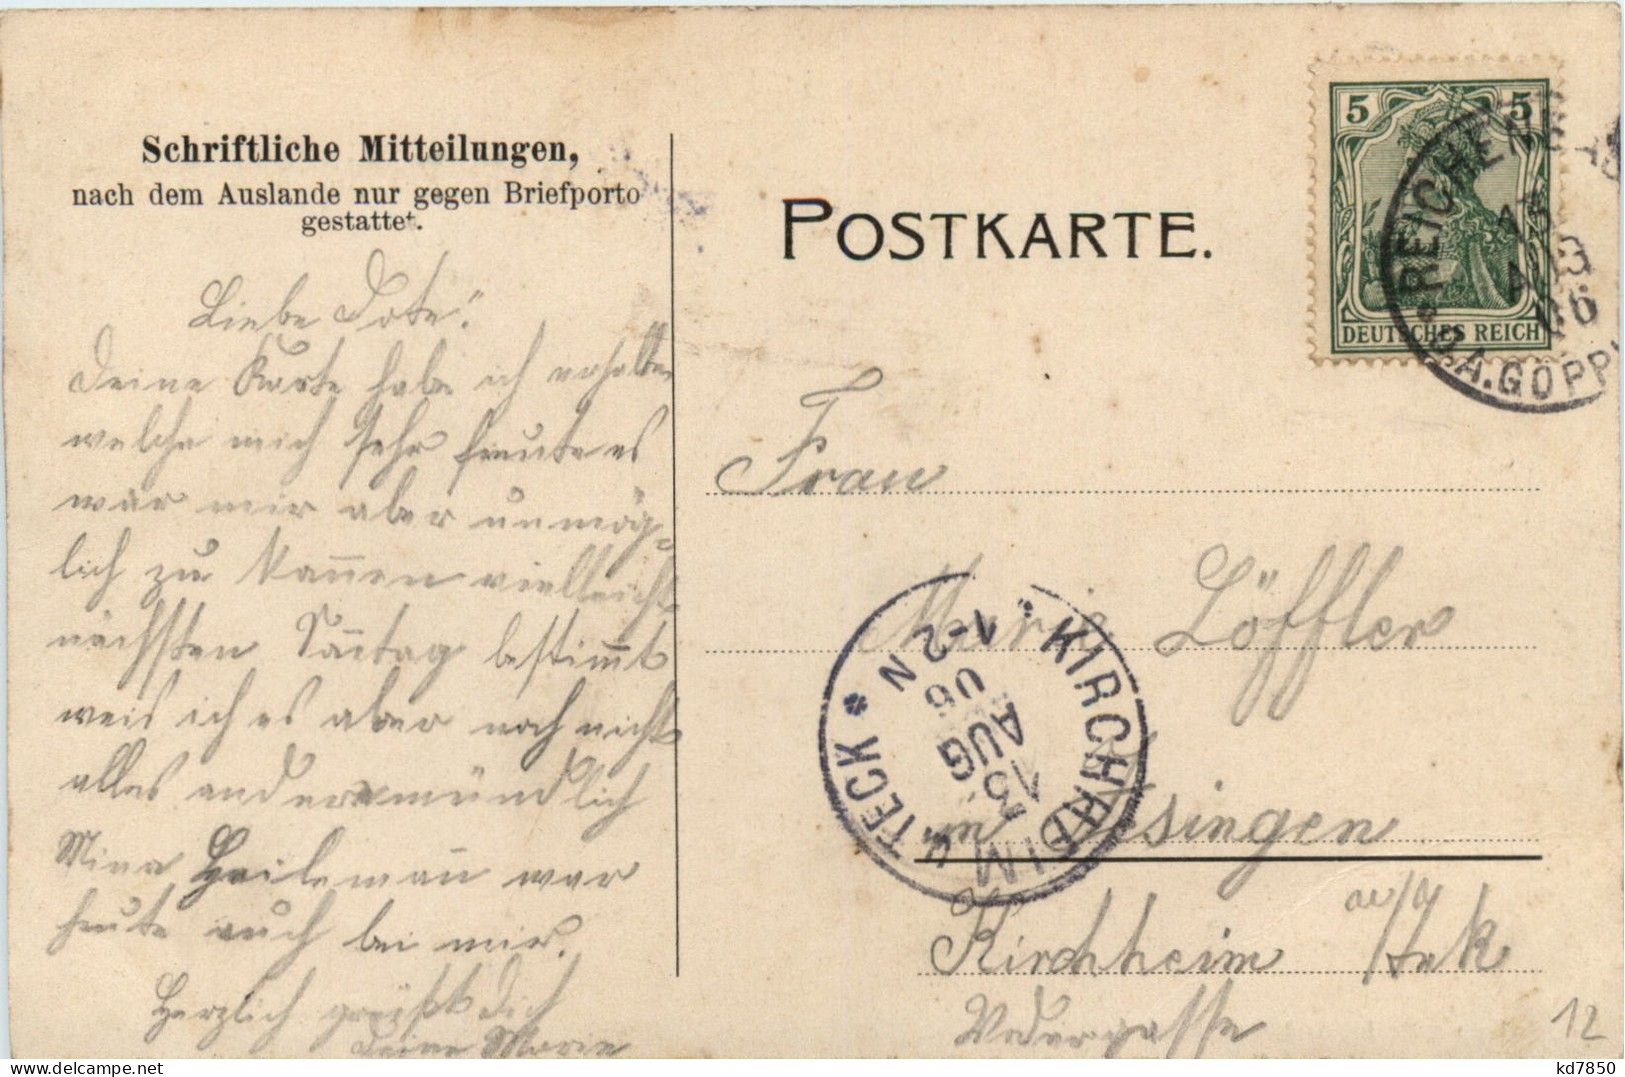 Schriftliche Mitteilungen,
nach dem Auslande nur gegen Briefporto
gestattet.
POSTKARTE.
5 5
DEUTSCHES REICH
REICHENB
O.A. GÖPP
06
Liebe Dote!
Deine Karte habe ich erhalten
welche mich sehr freute es
war mir aber unmög-
lich zu kommen vielleicht
nächsten Sonntag bestimmt
weis ich es aber noch nicht
alles andere mündlich
Mina Heilemann war
heute auch bei mir.
Herzlich grüßt dich
Deine Marie
Frau
Marie Löffler
in
Kirchheim a/Teck
KIRCHHEIM u. TECK
13 AUG 06
N 1-2
12
kd7850